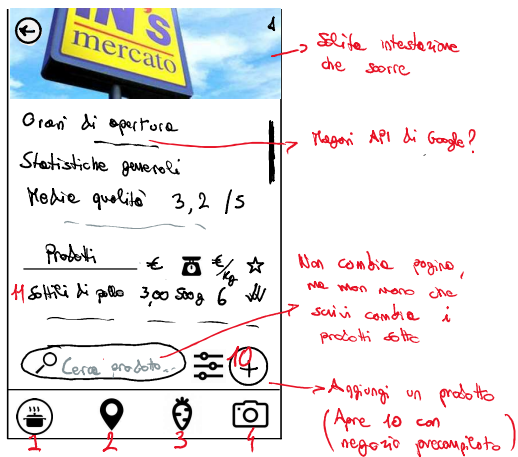 IN'S
mercato
Solita intestazione
che scorre
Orari di apertura
Magari API di Google?
Statistiche generali
Media qualità 3,2 /5
Prodotti € €/kg
11 Sottili di pollo 3,00 500g 6
Non cambia pagina,
ma man mano che
scrivi cambia i
prodotti sotto
Cerca prodotto...
10
Aggiungi un prodotto
(Apre 10 con
negozio precompilato)
1 2 3 4